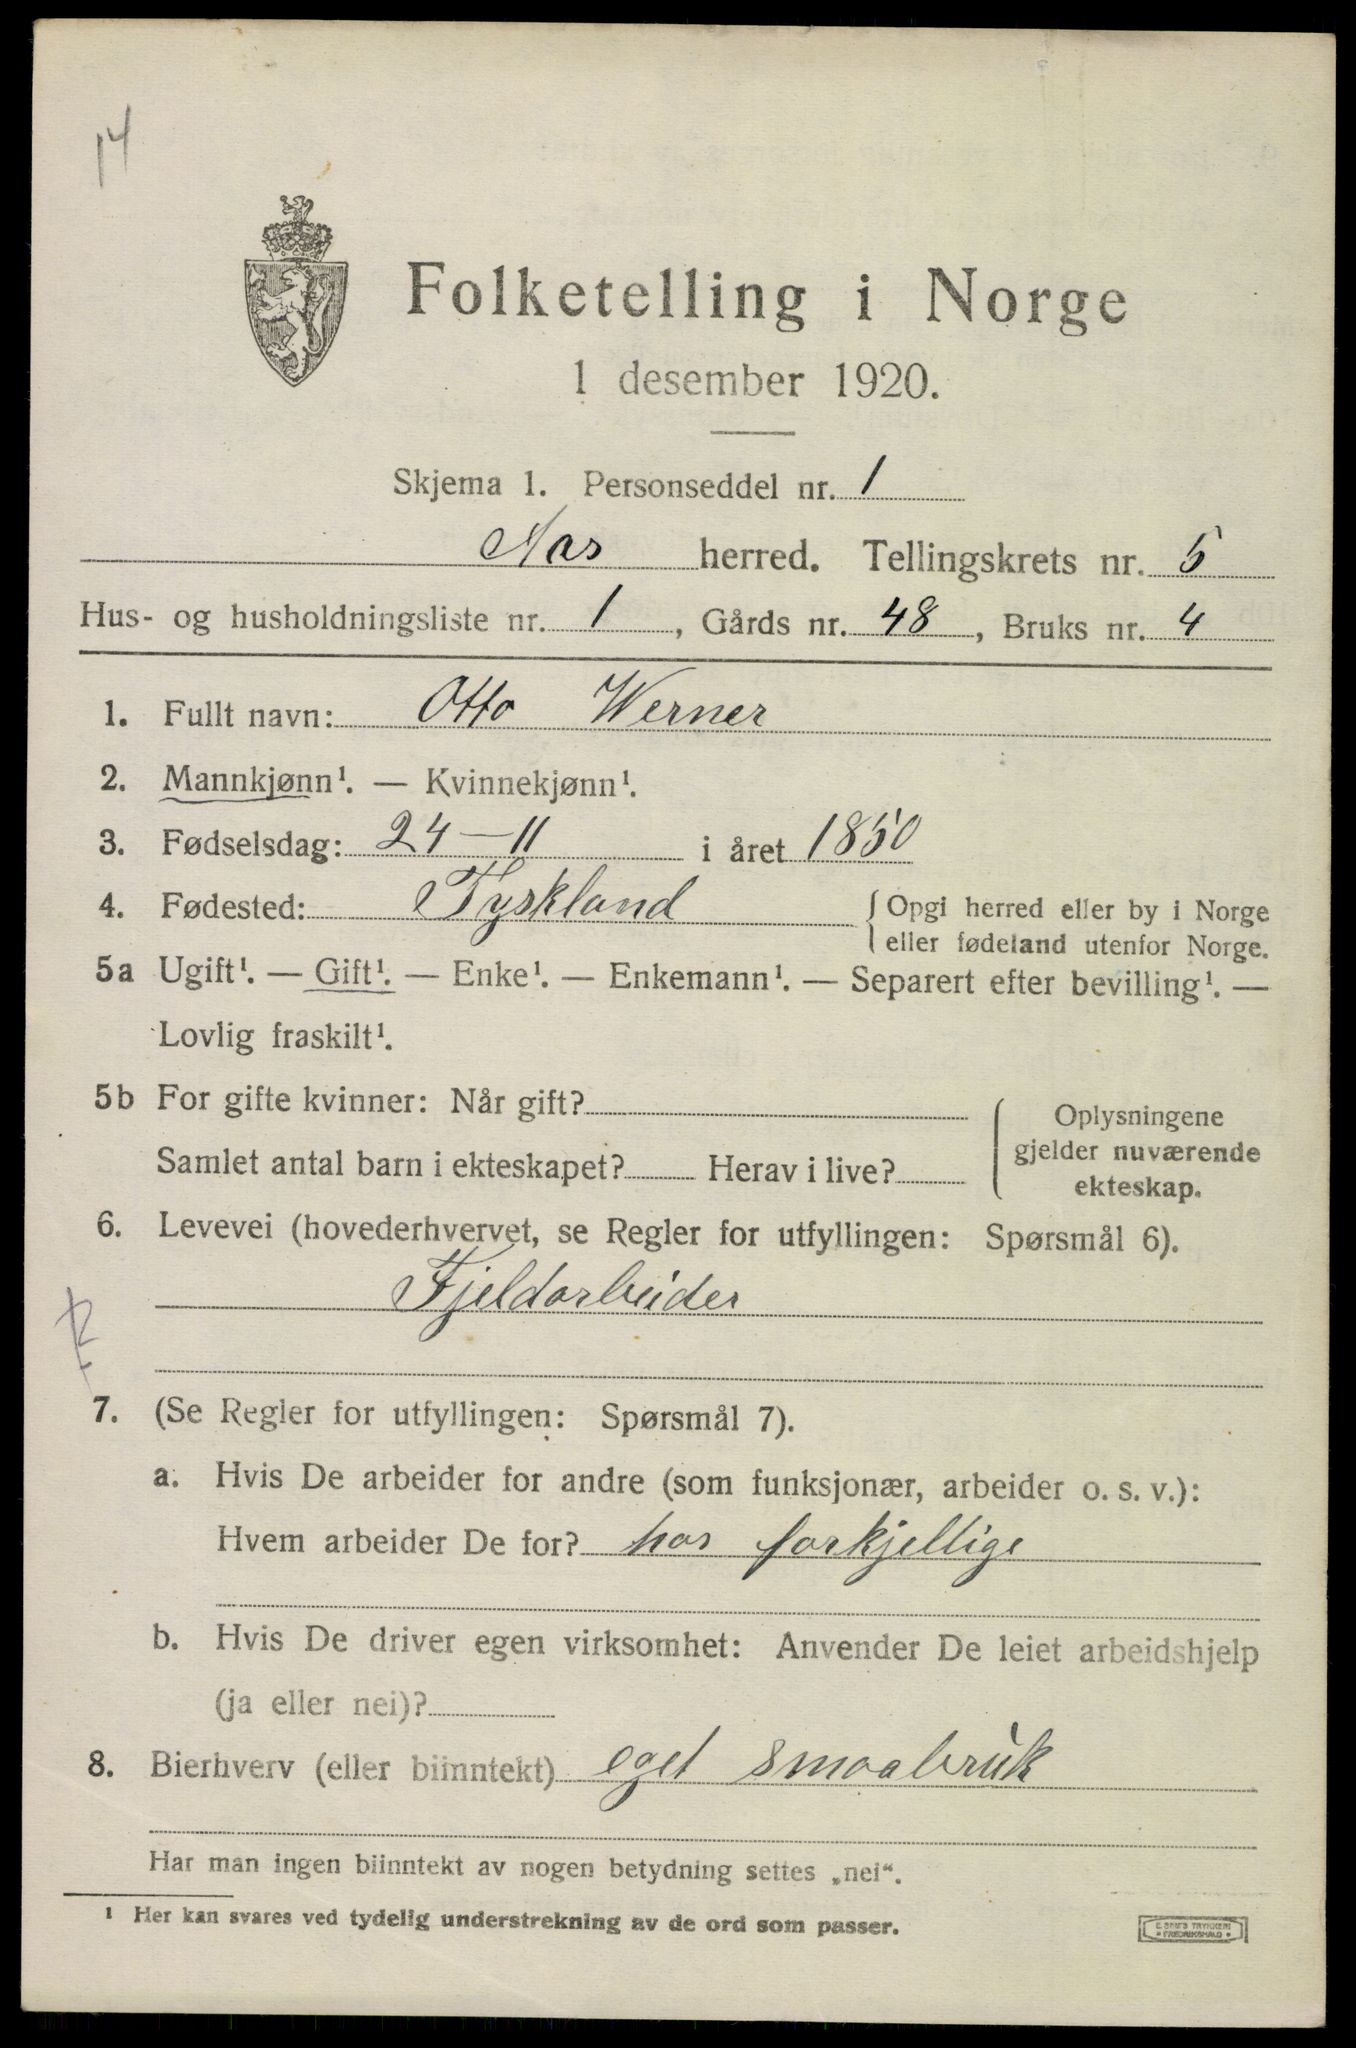 14
Folketelling i Norge
1 desember 1920.
Skjema 1. Personseddel nr. 1
Aas herred. Tellingskrets nr. 5
Hus- og husholdningsliste nr. 1, Gårds nr. 48, Bruks nr. 4
1. Fullt navn: Otto Werner
2. Mannkjønn¹. — Kvinnekjønn¹.
3. Fødselsdag: 24-11 i året 1850
4. Fødested: Tyskland { Opgi herred eller by i Norge
eller fødeland utenfor Norge.
5a Ugift¹. — Gift¹. — Enke¹. — Enkemann¹. — Separert efter bevilling¹. —
Lovlig fraskilt¹.
5b For gifte kvinner: Når gift?
Samlet antal barn i ekteskapet? Herav i live?
Oplysningene
gjelder nuværende
ekteskap.
6. Levevei (hovederhvervet, se Regler for utfyllingen: Spørsmål 6).
Fjeldarbeider
7. (Se Regler for utfyllingen: Spørsmål 7).
a. Hvis De arbeider for andre (som funksjonær, arbeider o. s. v.):
Hvem arbeider De for? hos forkjellige
b. Hvis De driver egen virksomhet: Anvender De leiet arbeidshjelp
(ja eller nei)?
8. Bierhverv (eller biinntekt) eget smaabruk
Har man ingen biinntekt av nogen betydning settes „nei“.
¹ Her kan svares ved tydelig understrekning av de ord som passer.
E. SEMS TRYKKERI
FREDRIKSHALD